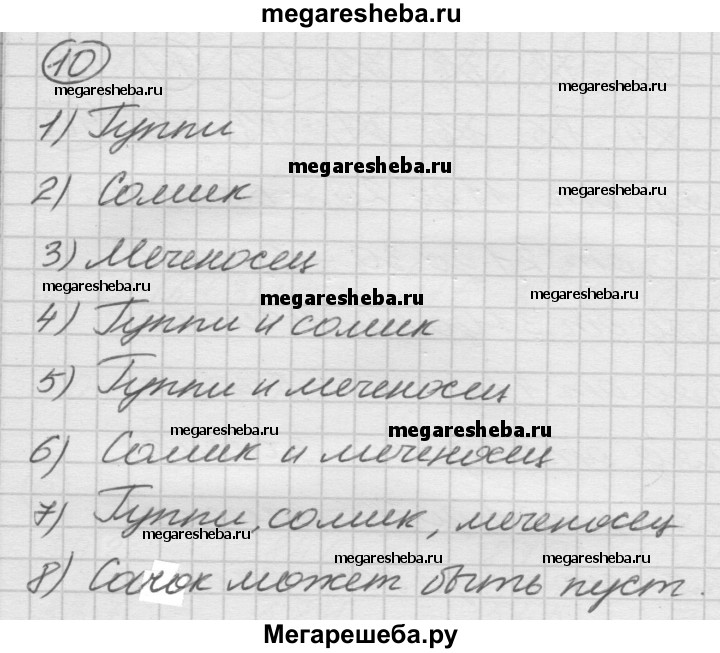 megaresheba.ru
10
megaresheba.ru
megaresheba.ru
1) Гуппи
megaresheba.ru
2) Сомик
megaresheba.ru
3) Меченосец
megaresheba.ru
megaresheba.ru
megaresheba.ru
4) Гуппи и сомик
5) Гуппи и меченосец
megaresheba.ru
megaresheba.ru
6) Сомик и меченосец
7) Гуппи, сомик, меченосец
megaresheba.ru
megaresheba.ru
megaresheba.ru
8) Сачок может быть пуст.
Мегарешеба.ру